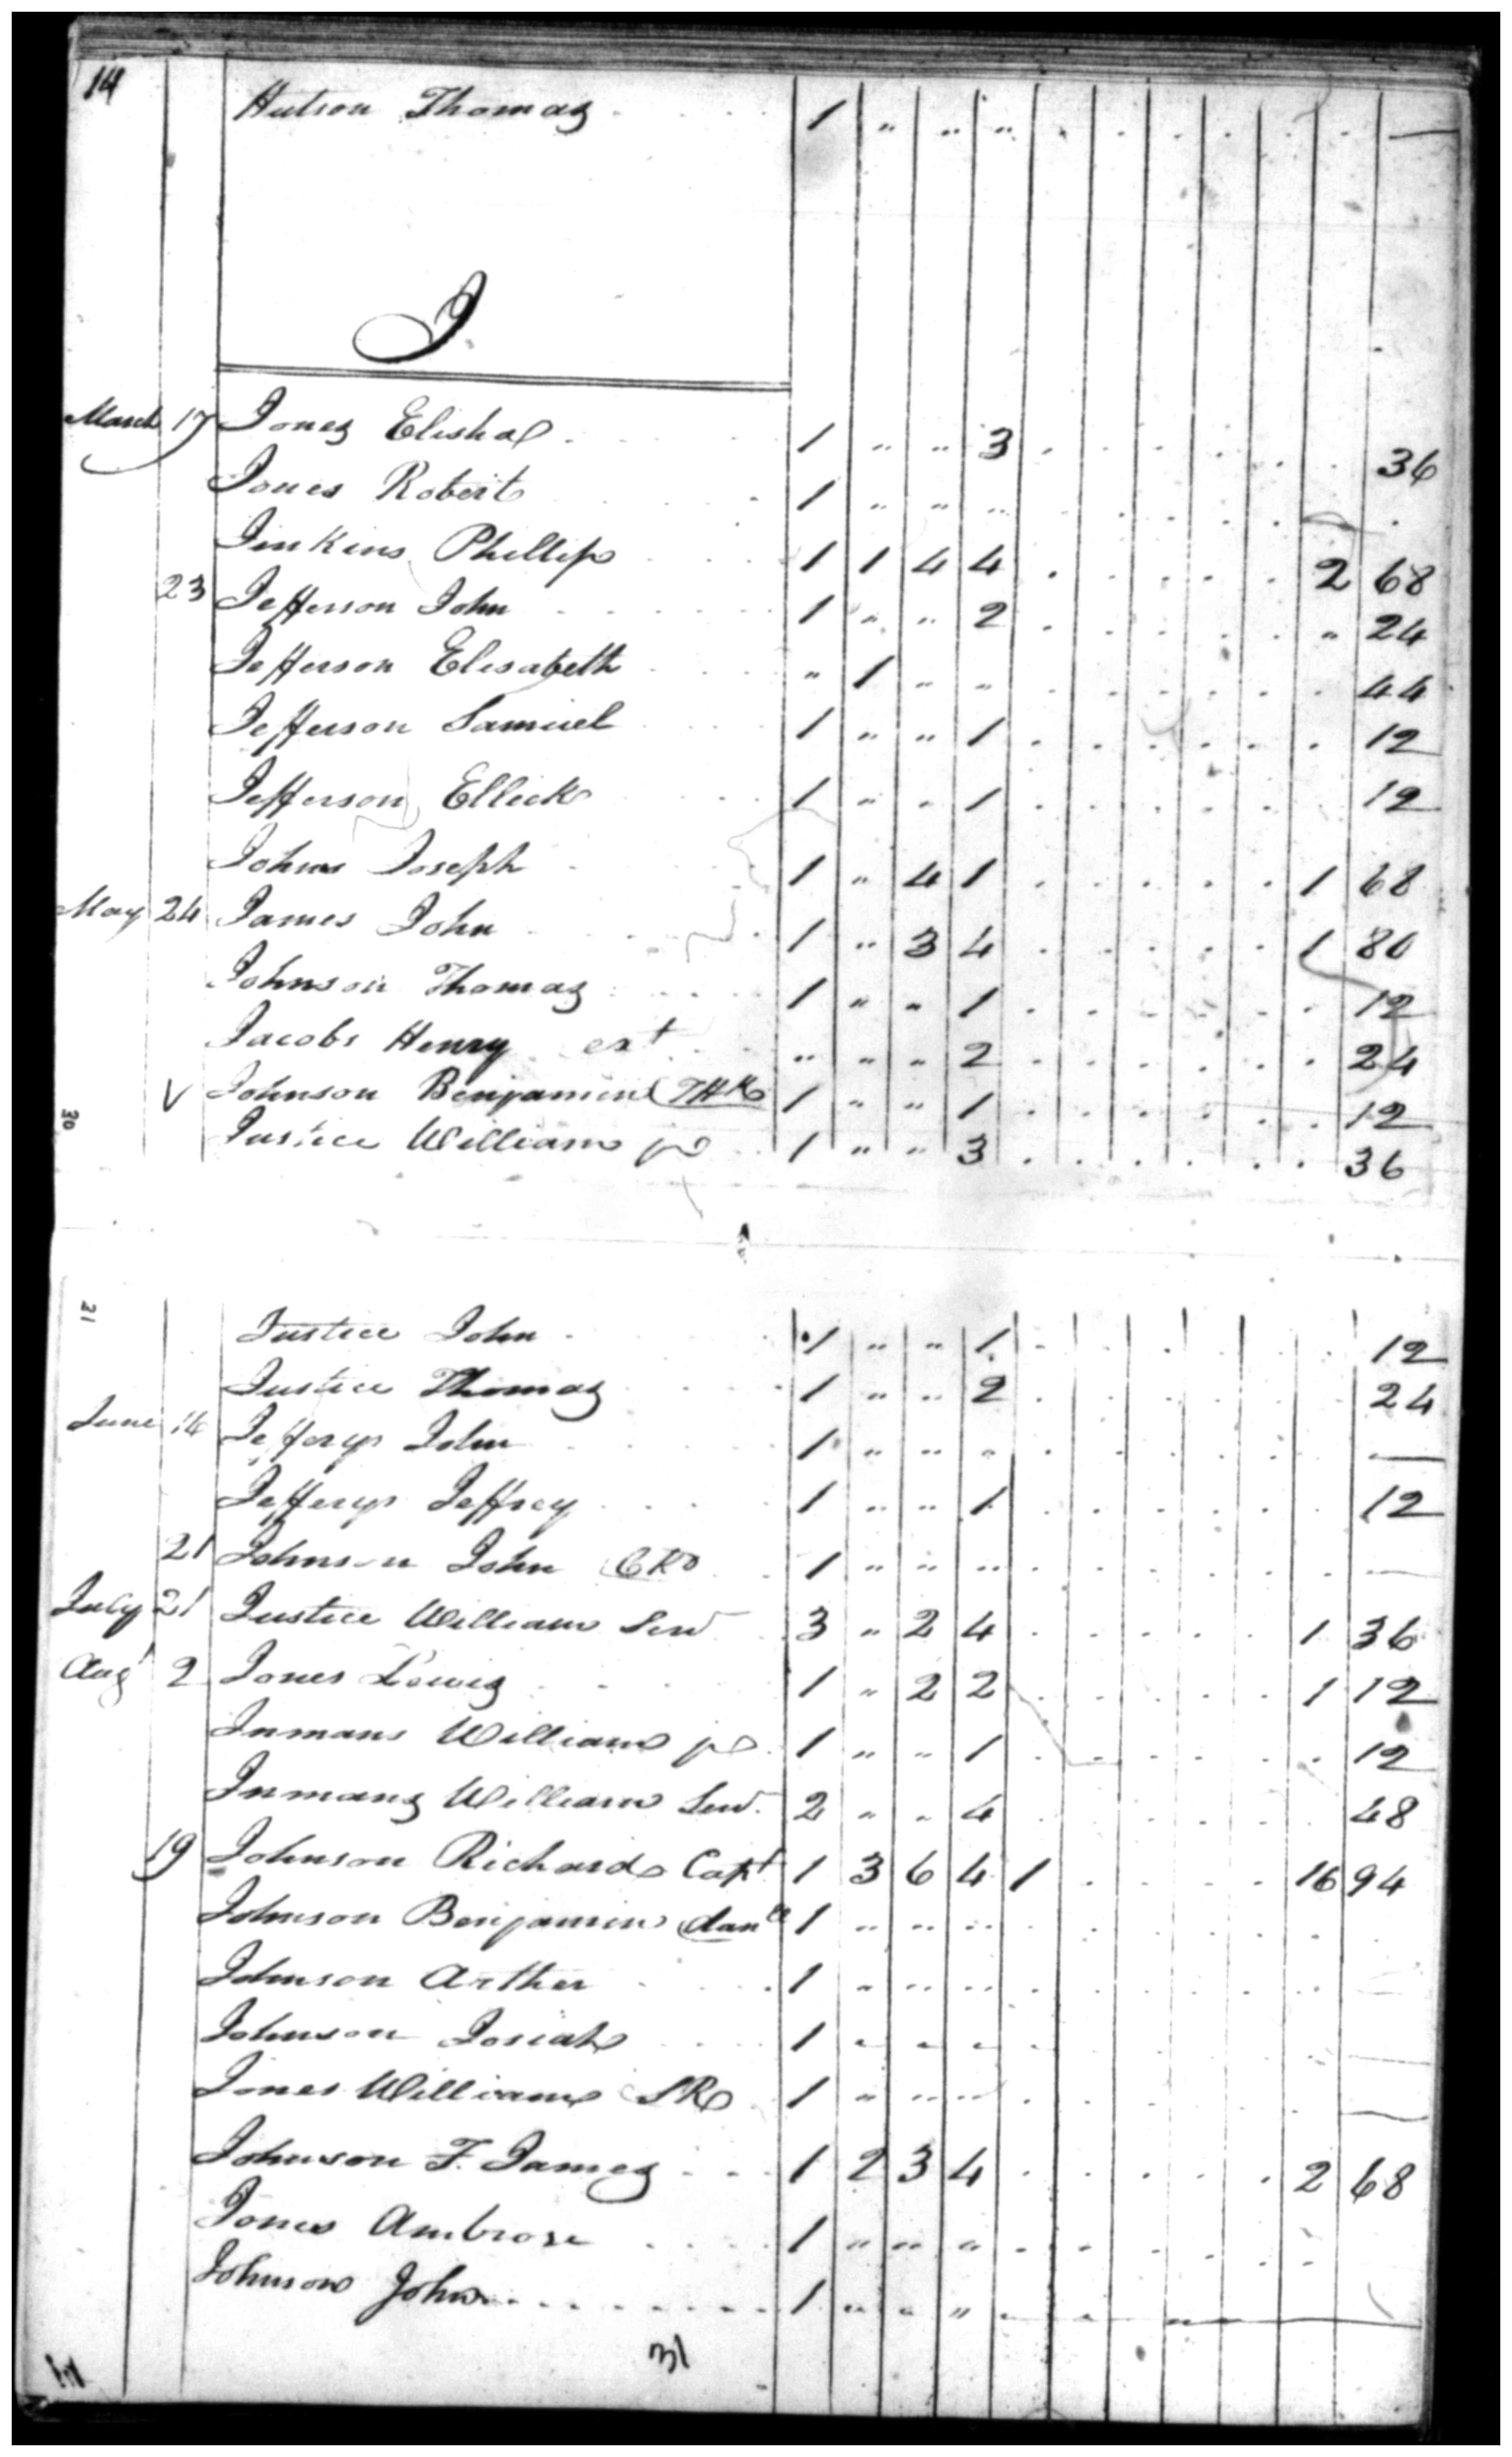 14
Hutson Thomas 1 " " "
J
March 17 Jones Elisha 1 " " 3 36
Jones Robert 1 " " "
Jinkins Phillip 1 1 4 4 2 68
23 Jefferson John 1 " " 2 " 24
Jefferson Elisabeth " 1 " " 44
Jefferson Samuel 1 " " 1 12
Jefferson Ellick 1 " " 1 12
Johns Joseph 1 " 4 1 1 68
May 24 James John 1 " 3 4 1 80
Johnson Thomas 1 " " 1 12
Jacobs Henry ext " " " 2 24
V Johnson Benjamin 1 " " 1 12
30
Justice William jr 1 " " 3 36
21
Justice John 1 " " 1 12
Justice Thomas 1 " " 2 24
June 14 Jefferys John 1 " " " —
Jefferys Jeffrey 1 " " 1 12
21 Johnson John CK 1 " " " —
July 21 Justice William Senr 3 " 2 4 1 36
Augt 2 Jones Lewis 1 " 2 2 1 12
Inmans William jr 1 " " 1 12
Inmans William Senr. 2 " " 4 48
19 Johnson Richard Capt 1 3 6 4 1 16 94
Johnson Benjamin 1 " " "
Johnson Arther 1 " " " —
Johnson Josiah 1 " " " —
Jones William SR 1 " " " —
Johnson F. James 1 2 3 4 2 68
Jones Ambrose 1 " " "
Johnson John 1 " " " —
31